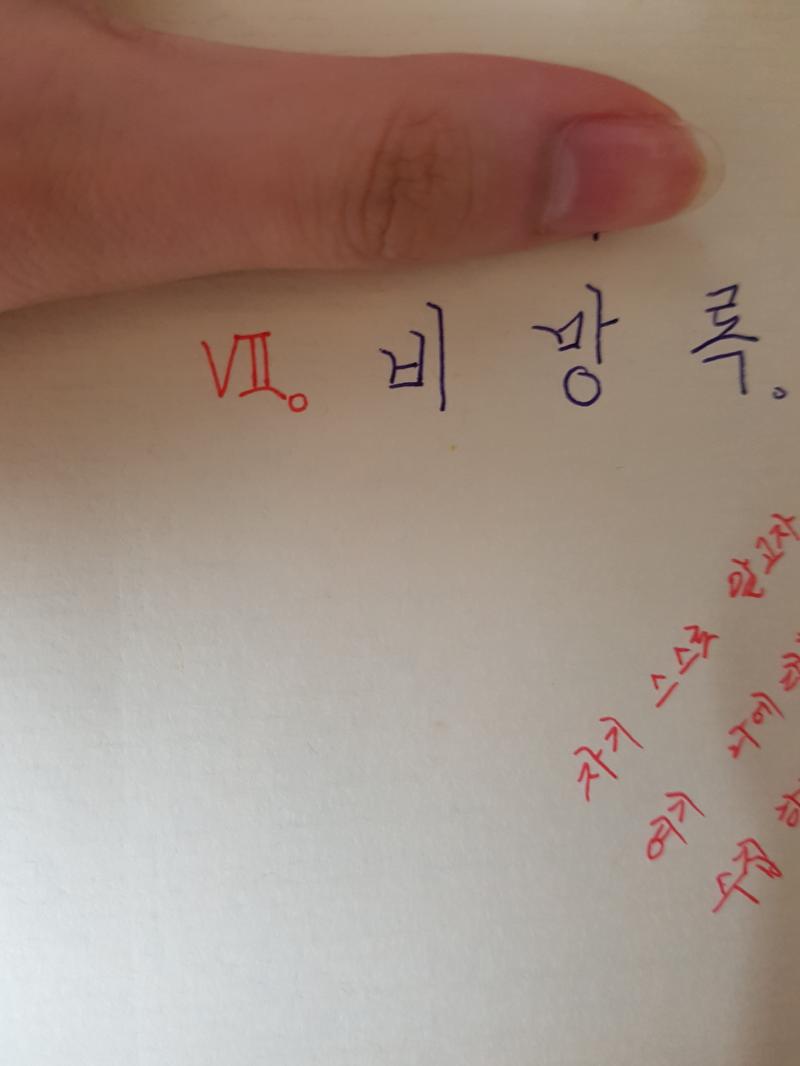 Ⅶ。비 망 록。
자기 스스로 알고자
여기 외에
수집